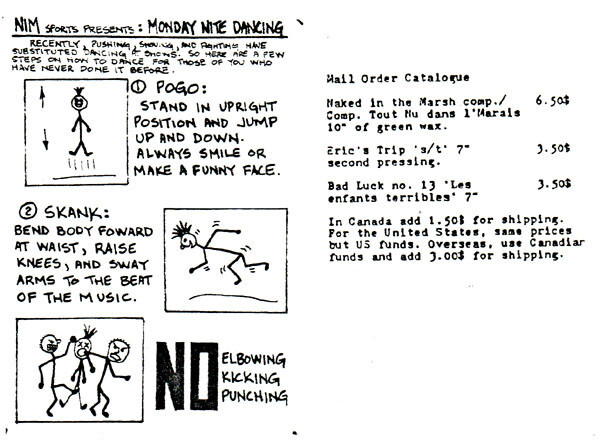 NIM SPORTS PRESENTS: MONDAY NITE DANCING
RECENTLY, PUSHING, SHOVING, AND FIGHTING HAVE
SUBSTITUTED DANCING AT SHOWS. SO HERE ARE A FEW
STEPS ON HOW TO DANCE FOR THOSE OF YOU WHO
HAVE NEVER DONE IT BEFORE.
① POGO:
STAND IN UPRIGHT
POSITION AND JUMP
UP AND DOWN.
ALWAYS SMILE OR
MAKE A FUNNY FACE.
② SKANK:
BEND BODY FOWARD
AT WAIST, RAISE
KNEES, AND SWAY
ARMS TO THE BEAT
OF THE MUSIC.
NO
ELBOWING
KICKING
PUNCHING
Mail Order Catalogue
Naked in the Marsh comp./ 6.50$
Comp. Tout Nu dans l'Marais
10" of green wax.
Eric's Trip 's/t' 7" 3.50$
second pressing.
Bad Luck no. 13 'Les 3.50$
enfants terribles' 7"
In Canada add 1.50$ for shipping.
For the United States, same prices
but US funds. Overseas, use Canadian
funds and add 3.00$ for shipping.